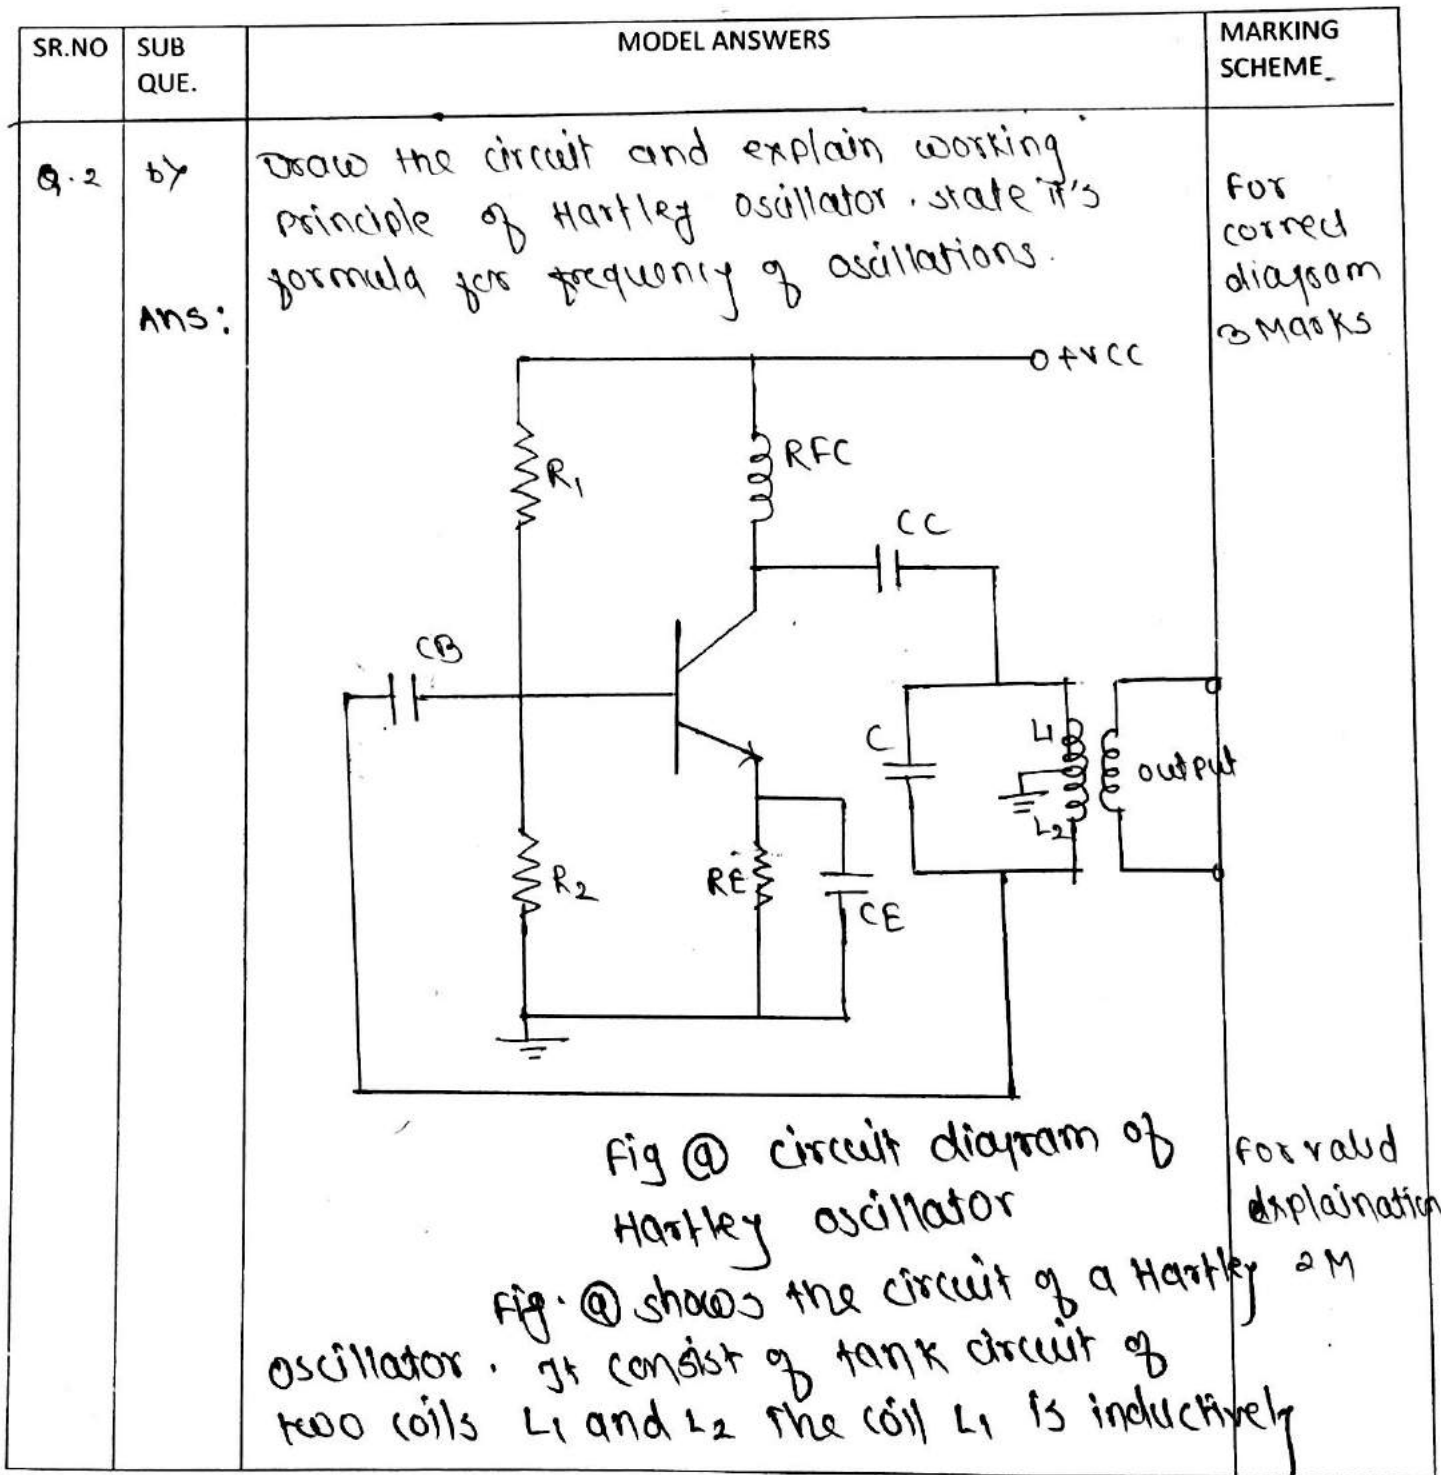 SR.NO SUB QUE. MODEL ANSWERS MARKING SCHEME
Q.2 b) Draw the circuit and explain working
principle of Hartley oscillator. state it's
formula for frequency of oscillations.
For
correct
diagram
3 Marks
Ans:
+VCC
R1
RFC
CC
CB
C
L1
output
L2
R2
RE
CE
Fig (a) circuit diagram of
Hartley oscillator
For valid
explaination
2M
Fig. (a) shows the circuit of a Hartley
oscillator. It consist of tank circuit of
two coils L1 and L2 The coil L1 is inductively